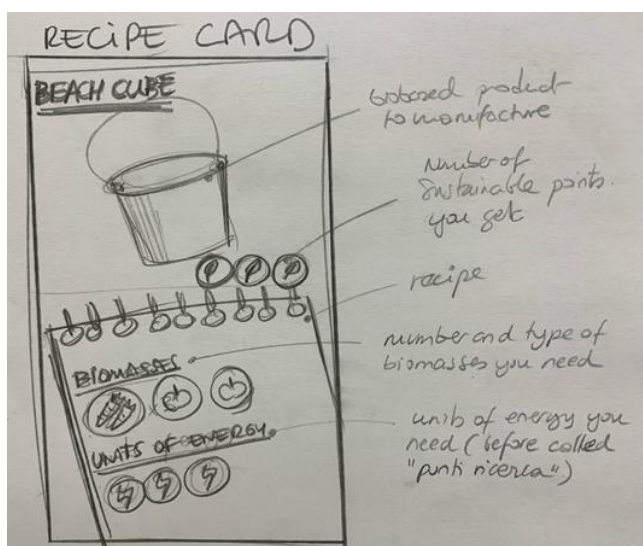 RECIPE CARD
BEACH CUBE
biobased product
to manufacture
number of
sustainable points
you get
recipe
number and type of
biomasses you need
BIOMASSES
UNITS OF ENERGY
units of energy you
need (before called
"punti ricerca")